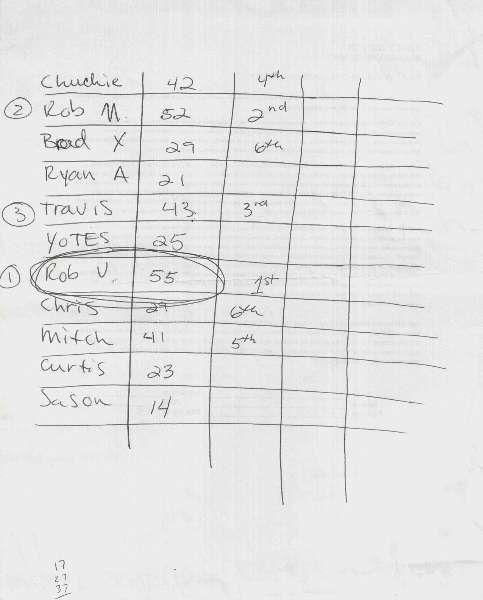 Chuckie 42 4th
② Rob M. 52 2nd
Brad X 29 6th
Ryan A 21
③ Travis 43 3rd
YOTES 25
① Rob V. 55 1st
Chris 29 6th
Mitch 41 5th
Curtis 23
Jason 14
17
27
37